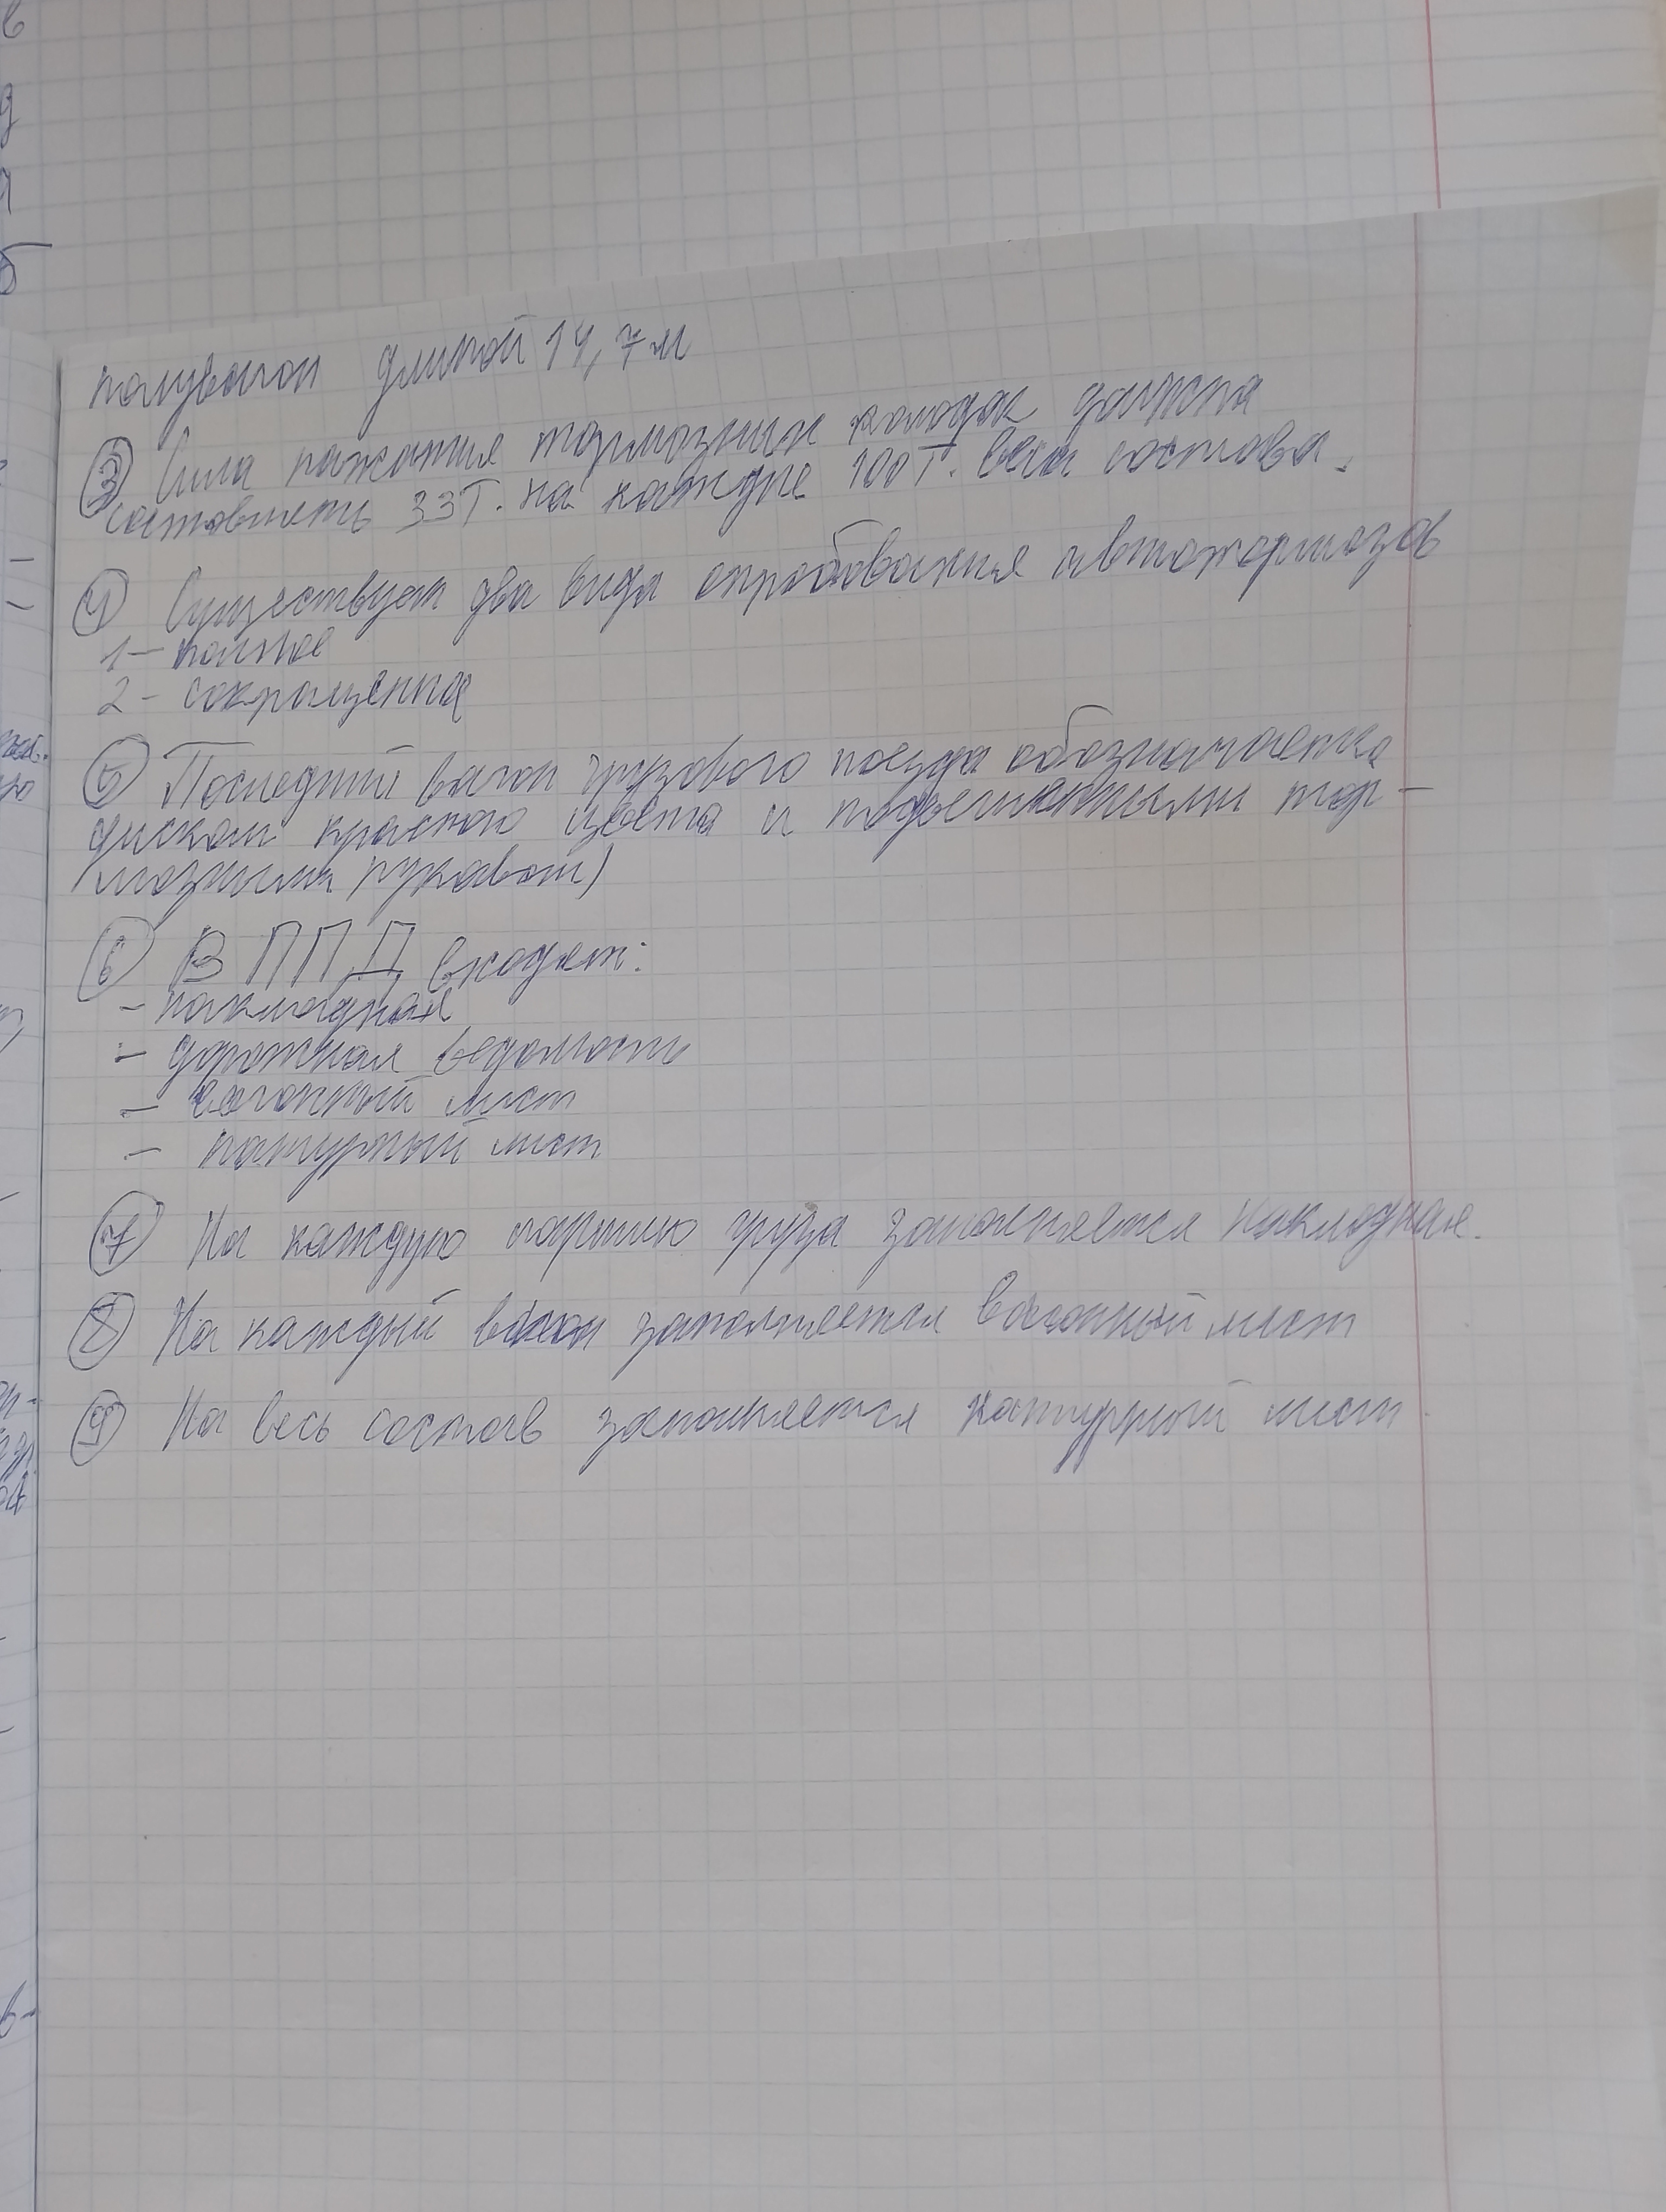 полувагон длиной 14,7 м
③ Сила нажатия тормозных колодок должна
составлять 33Т. на каждые 100Т. веса состава.
④ Существует два вида опробования автотормозов
1- полное
2- сокращенная
⑤ Последний вагон грузового поезда обозначается
диском красного цвета и подвешенными тор-
мозными рукавом)
⑥ В ППД входят:
- накладная
- дорожная ведомость
- вагонный лист
- натурный лист
⑦ На каждую партию груза заполняется накладная.
⑧ На каждый вагон заполняется вагонный лист
⑨ На весь состав заполняется натурный лист.